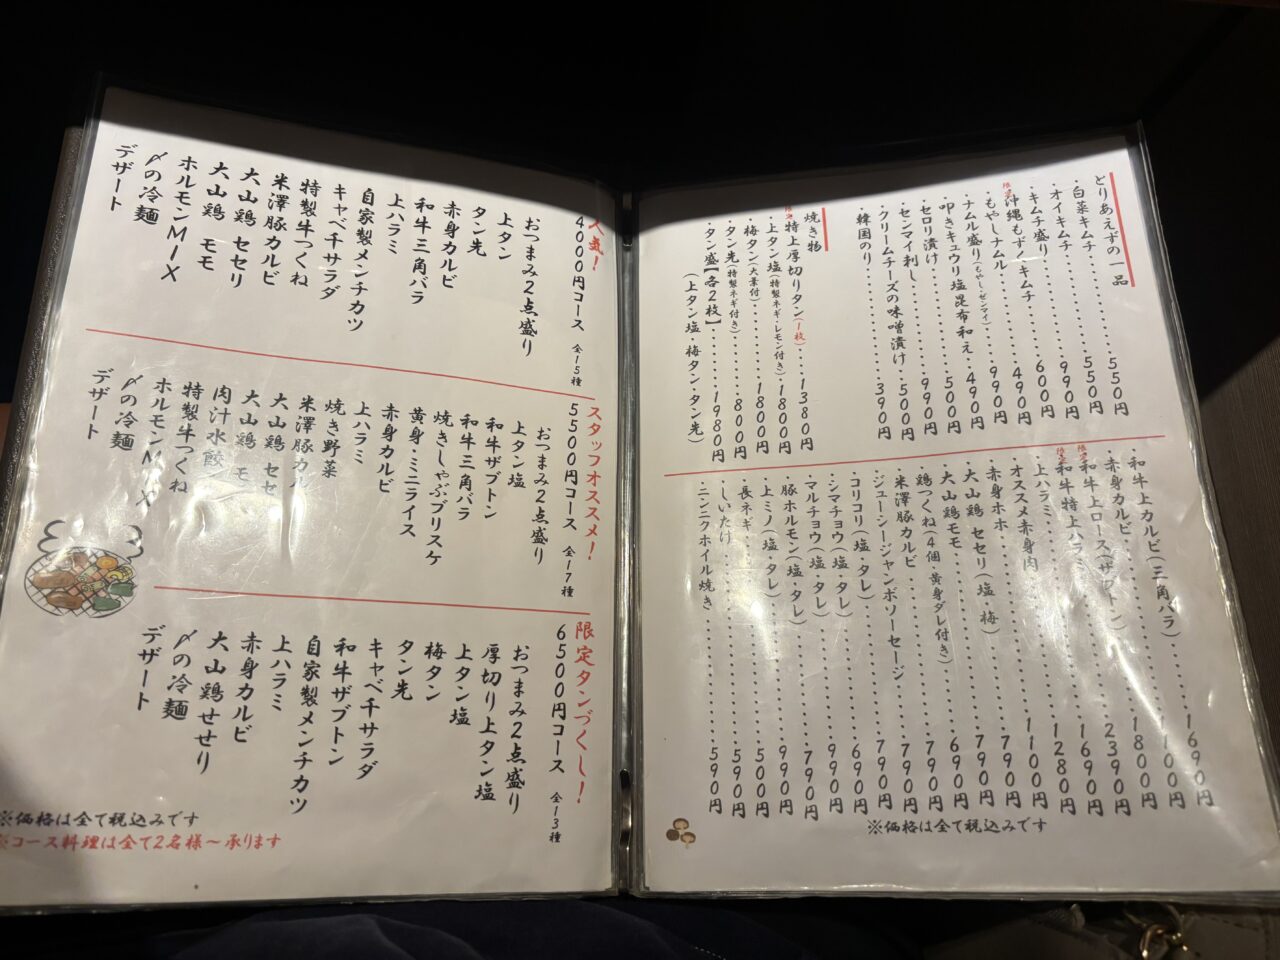 とりあえずの一品
・白菜キムチ……550円
・オイキムチ……550円
・キムチ盛り……990円
限定 沖縄もずくキムチ……600円
・もやしナムル……490円
・ナムル盛り(もやし・ゼンマイ)……990円
・叩きキュウリ塩昆布和え…490円
・セロリ漬け……500円
・センマイ刺し……990円
・クリームチーズの味噌漬け…500円
・韓国のり……390円
焼き物
限定 特上厚切りタン(1枚)…1380円
・上タン塩(特製ネギ・レモン付き)…1800円
・梅タン(大葉付)……1800円
・タン先(特製ネギ付き)……800円
・タン盛【各2枚】……1980円
(上タン塩・梅タン・タン先)
・和牛上カルビ(三角バラ)……1690円
・赤身カルビ……1100円
限定 和牛上ロース(ザブトン)……1800円
限定 和牛特上ハラミ……2390円
・上ハラミ……1690円
・オススメ赤身肉……1280円
・赤身ホホ……1100円
・大山鶏 セセリ(塩・梅)……790円
・大山鶏モモ……790円
・鶏つくね(4個・黄身ダレ付き)……690円
・米澤豚カルビ……790円
・ジューシージャンボソーセージ……790円
・コリコリ(塩・タレ)……790円
・シマチョウ(塩・タレ)……690円
・マルチョウ(塩・タレ)……990円
・豚ホルモン(塩・タレ)……790円
・上ミノ(塩・タレ)……990円
・長ネギ……500円
・しいたけ……590円
・ニンニクホイル焼き……590円
※価格は全て税込みです
人気!
4000円コース 全15種
おつまみ2点盛り
上タン
タン先
赤身カルビ
和牛三角バラ
上ハラミ
自家製メンチカツ
キャベ千サラダ
特製牛つくね
米澤豚カルビ
大山鶏 セセリ
大山鶏 モモ
ホルモンMIX
〆の冷麺
デザート
スタッフオススメ!
5500円コース 全17種
おつまみ2点盛り
上タン塩
和牛ザブトン
和牛三角バラ
焼きしゃぶブリスケ
黄身・ミニライス
赤身カルビ
上ハラミ
焼き野菜
米澤豚カル
大山鶏 セセ
大山鶏 モ
肉汁水餃
特製牛つくね
ホルモンMIX
〆の冷麺
デザート
限定タンづくし!
6500円コース 全13種
おつまみ2点盛り
厚切り上タン塩
上タン塩
梅タン
タン先
キャベ千サラダ
和牛ザブトン
自家製メンチカツ
上ハラミ
赤身カルビ
大山鶏せせり
〆の冷麺
デザート
※価格は全て税込みです
※コース料理は全て2名様～承ります